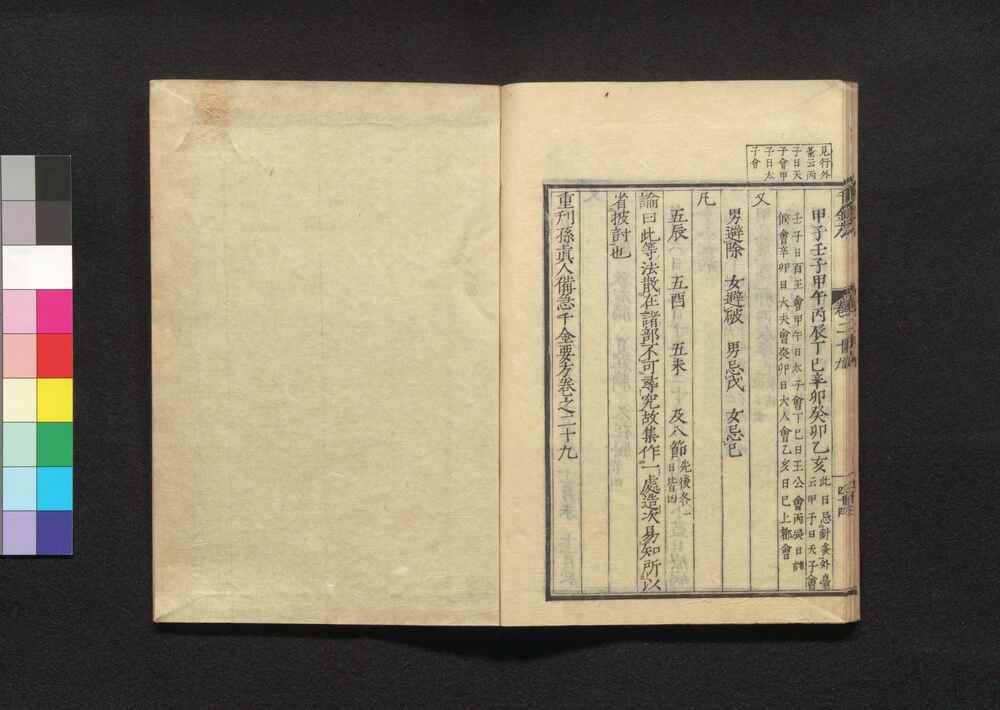 見行外
臺云丙
子日天
子會甲
子日太
子會
甲子壬子甲午丙辰丁巳辛卯癸卯乙亥此日忌針灸外臺
云甲子日天子會
壬子日百王會甲午日太子會丁巳日三公會丙辰日諸
侯會辛卯日大夫會癸卯日大人會乙亥日已上都會
又
男避除 女避破 男忌戊 女忌巳
凡
五辰 五酉 五未 及八節先後各一
日皆凶
論曰此等法散在諸部不可尋究故集作一處造次易知所以
省披討也
重刊孫眞人備急千金要方卷之二十九